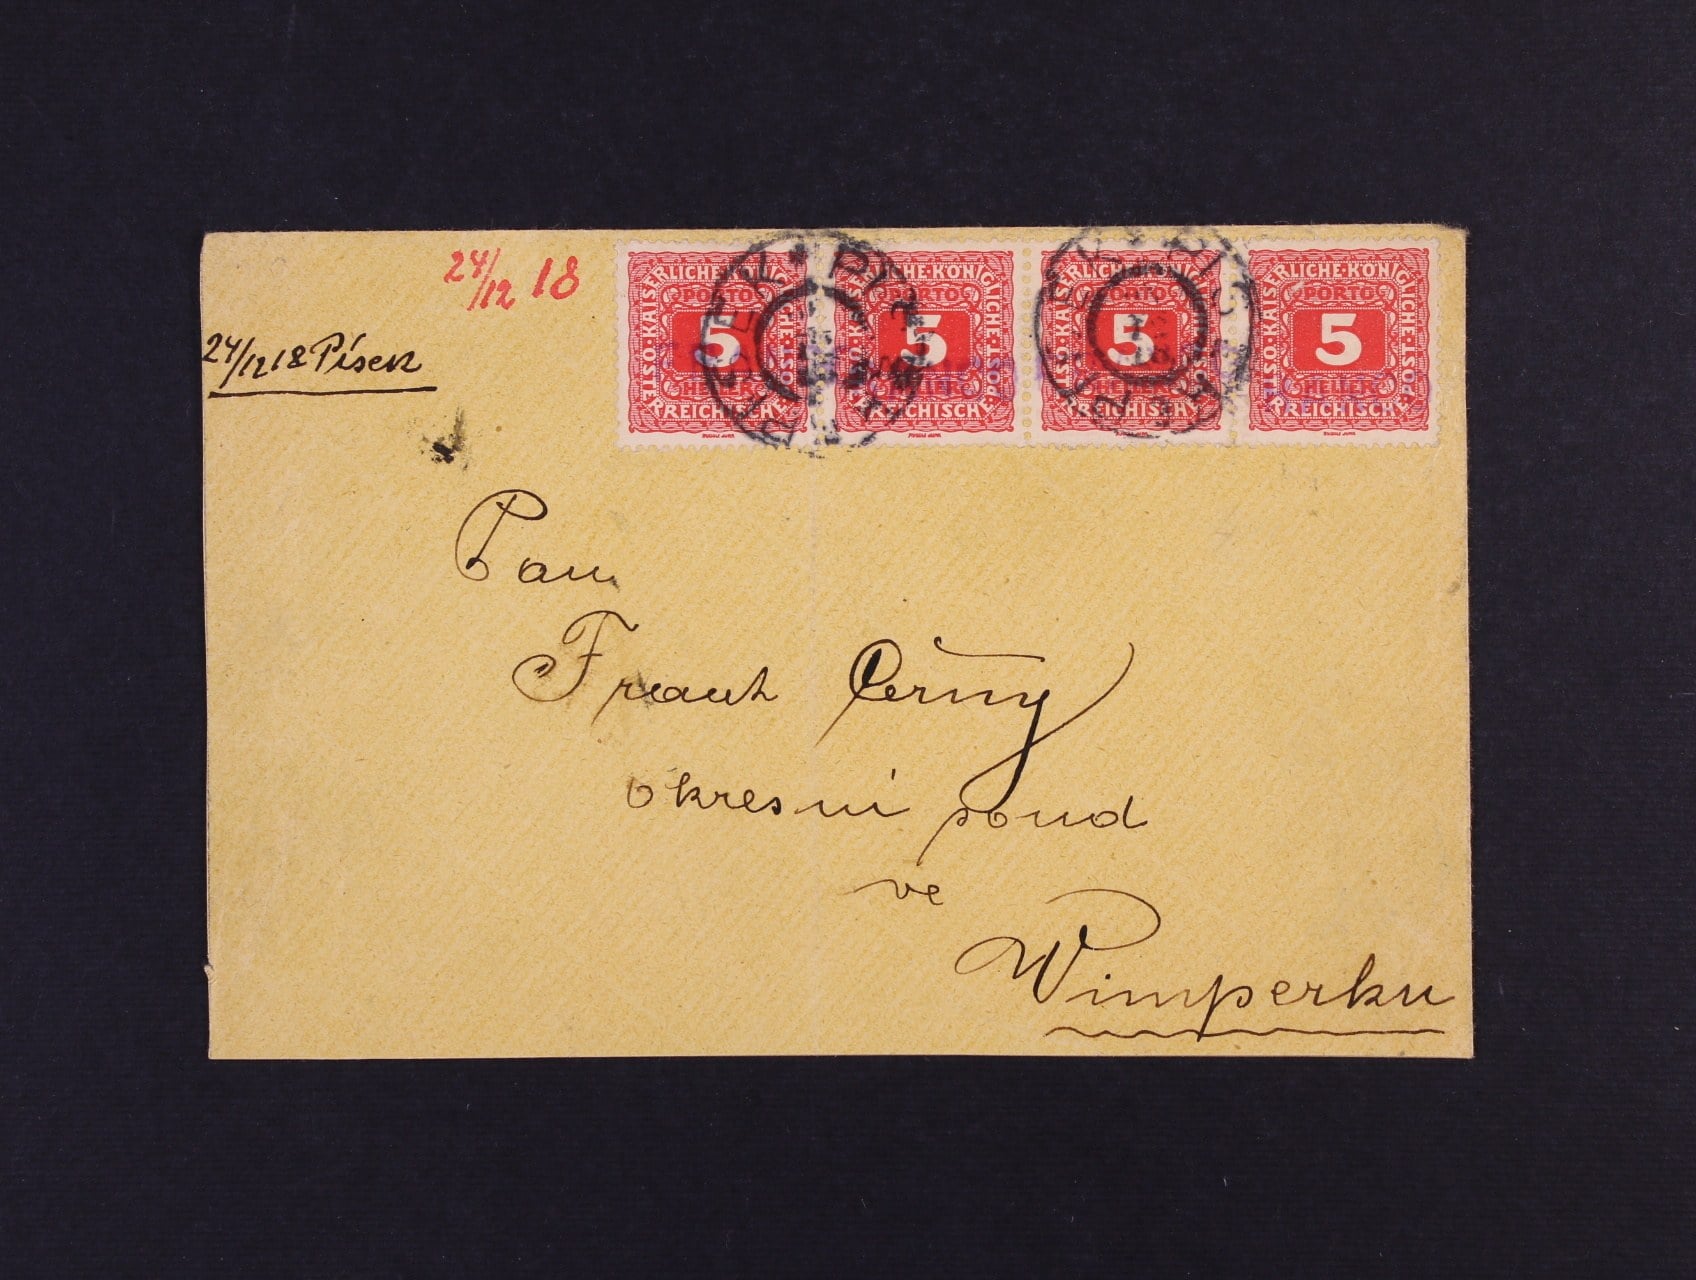 24/12 18
24/12 18 Písek
KAISERLICHE·KÖNIGLICHE·ÖSTERREICHISCHE·POST·
PORTO
5
HELLER
KAISERLICHE·KÖNIGLICHE·ÖSTERREICHISCHE·POST·
PORTO
5
HELLER
KAISERLICHE·KÖNIGLICHE·ÖSTERREICHISCHE·POST·
PORTO
5
HELLER
KAISERLICHE·KÖNIGLICHE·ÖSTERREICHISCHE·POST·
PORTO
5
HELLER
PÍSEK
Pan
Frant Černý
okresni soud
ve
Wimperku